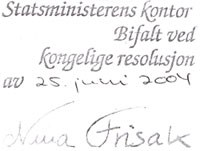 Statsministerens kontor
Bifalt ved
kongelige resolusjon
av 25. juni 2004
Nina Frisak